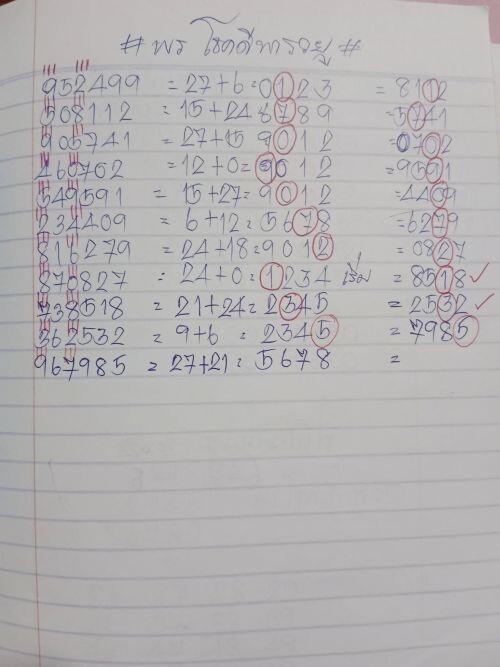 # พร โชคดีพารวยู #
952499 = 27+6=0123 = 8112
508112 = 15+24 8789 =5741
905741 = 27+15 9012 =0702
460702 =12+0=9012 =9591
549591 = 15+27=9012 =4409
234409 = 6+12=5678 =6279
816279 = 24+18=9012 = 0827
870827 = 24+0=1234 เริ่ม = 8518 ✓
738518 = 21+24=2345 = 2532 ✓
362532 = 9+6 = 2345 = 7985
967985 = 27+21= 5678 =